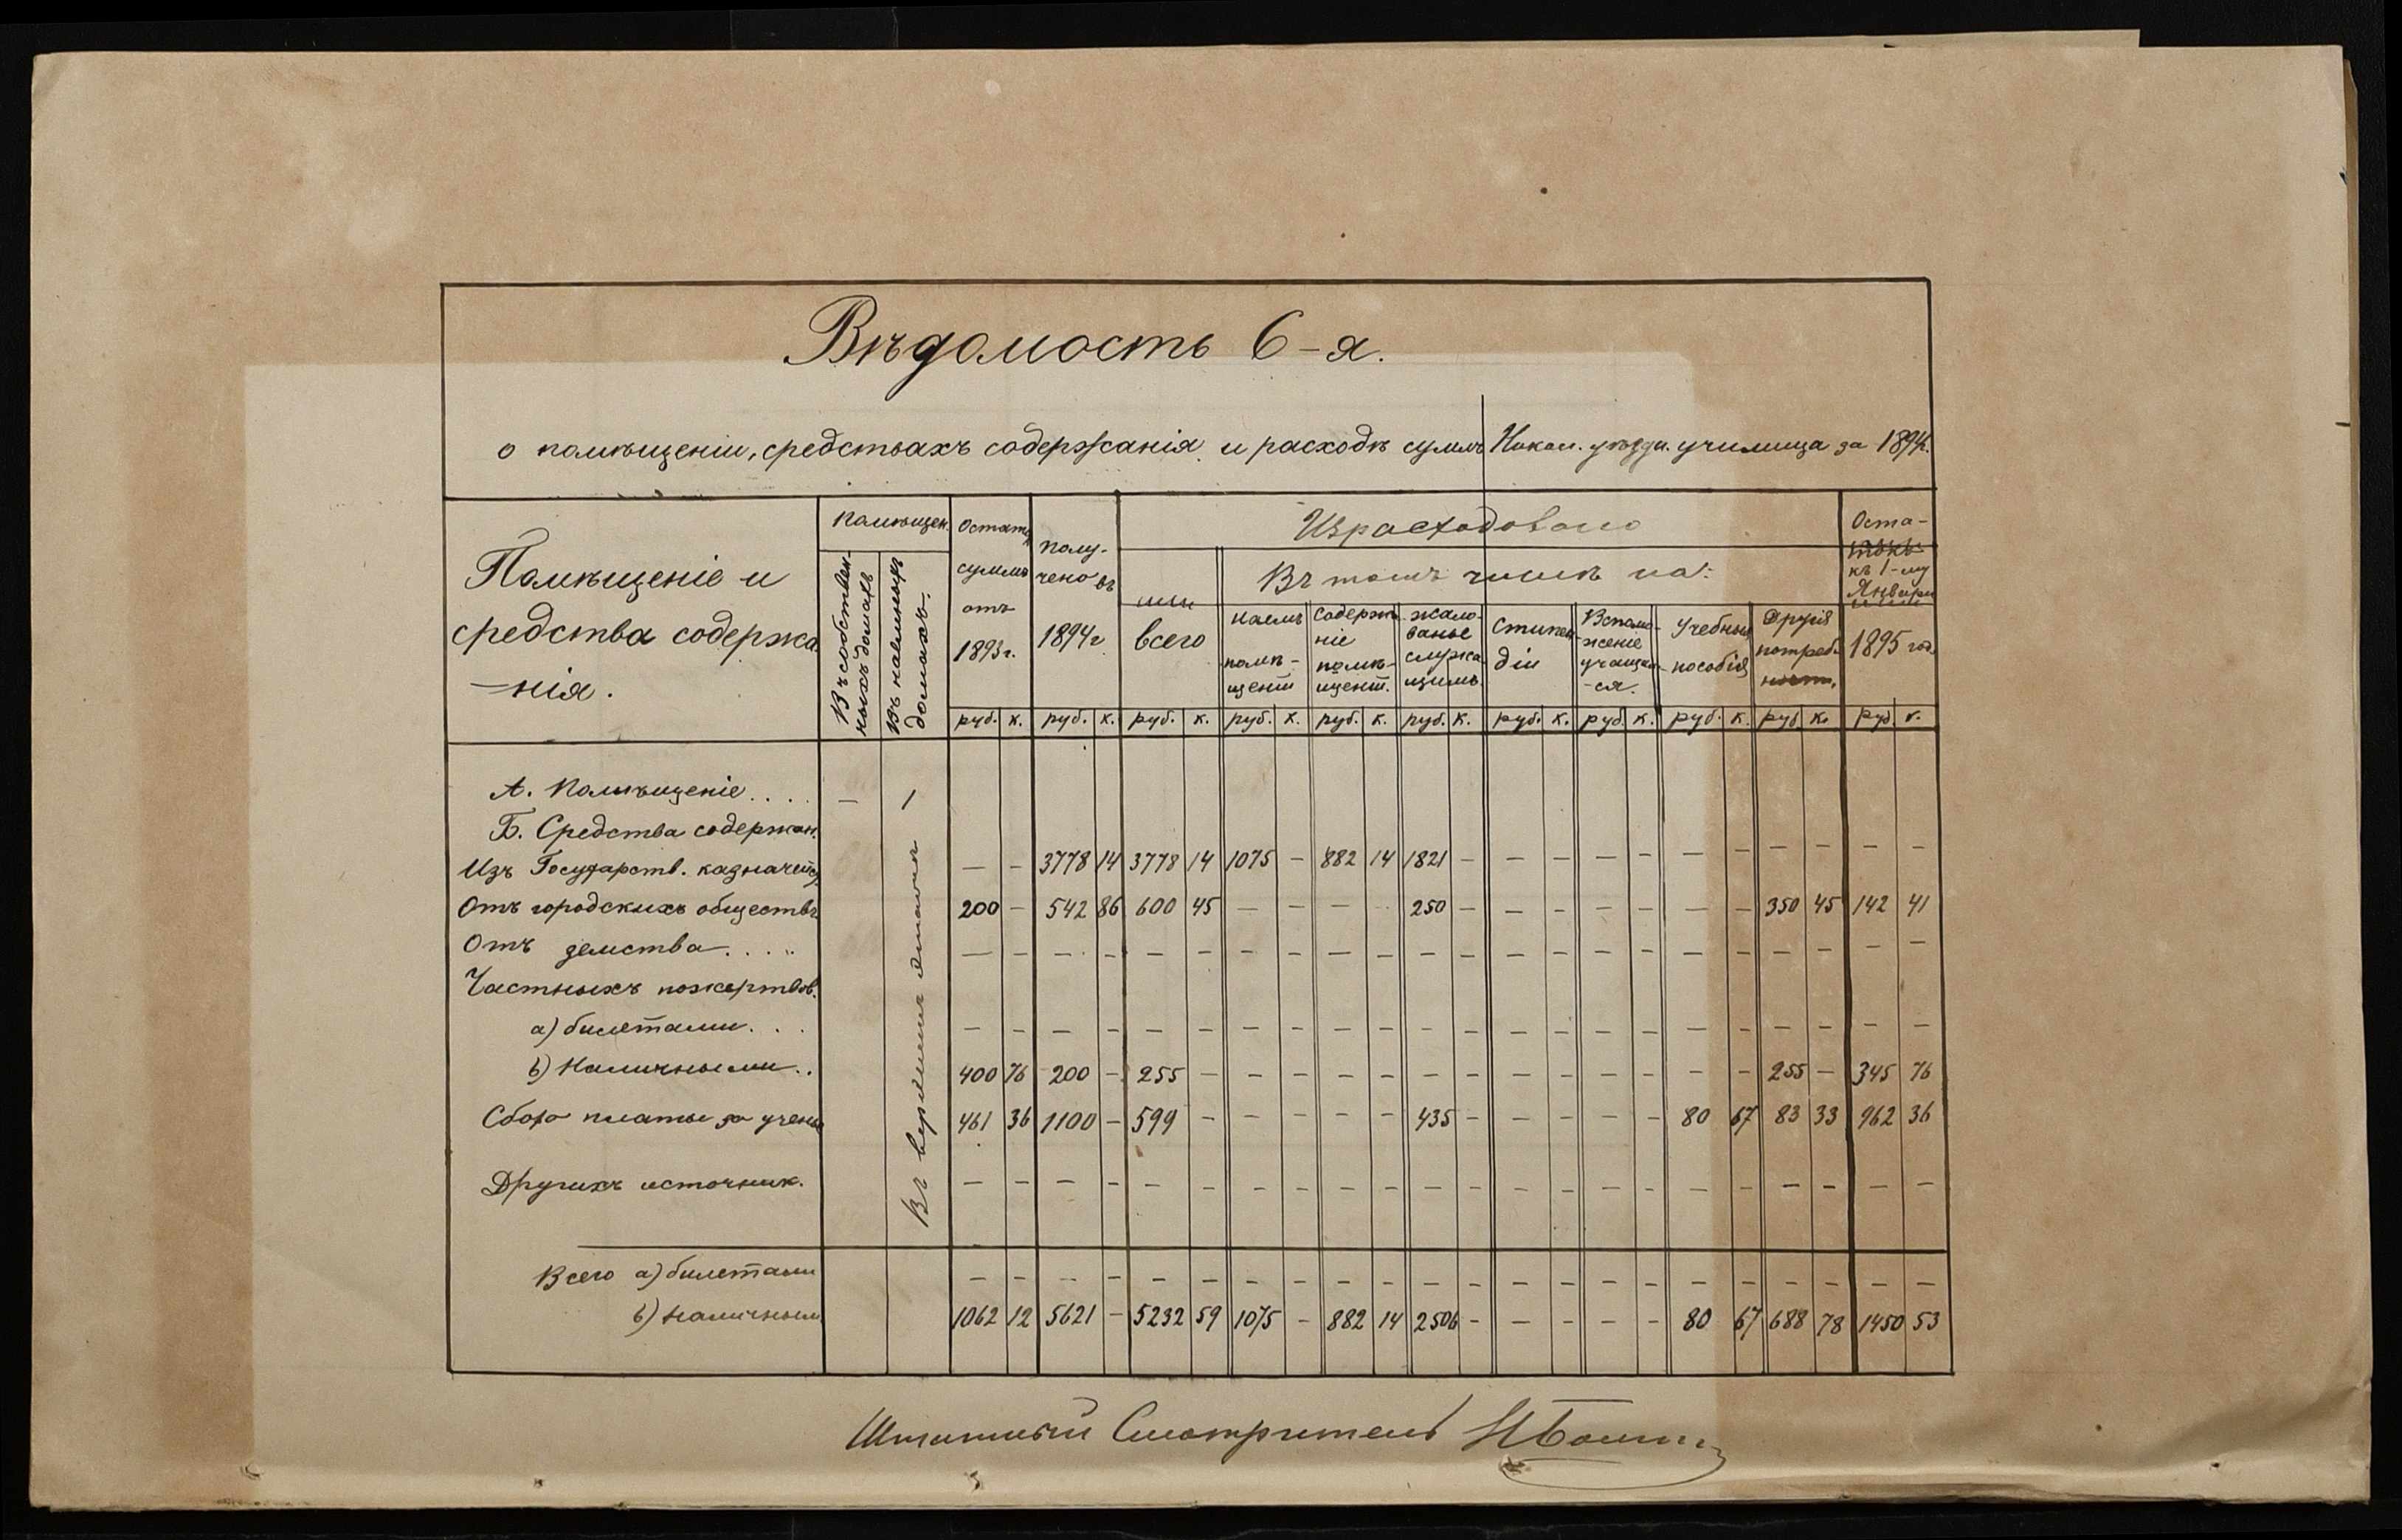 Вѣдомость 6-я.
о помѣщеніи, средствахъ содержанія и расходѣ суммъ уѣздн. училища за 1894г.
Помѣщеніе и средства содержа-нія.
Помѣщен.
Въ собствен-ныхъ домахъ
Въ наемныхъ домахъ.
Остатк. суммъ отъ 1893 г.
Полу-чено въ 1894 г
Израсходовано
всего
Въ томъ числѣ на:
Наемъ помѣ-щеній
Содержа-ніе помѣ-щеній.
жало-ванье служа-щимъ.
стипен-діи
Вспомо-женіе учащим-ся.
Учебныя пособія
Другія потреб-ност.
Оста-токъ къ 1-му Января 1895 год.
руб. к. руб. к. руб. к. руб. к. руб. к. руб. к. руб. к. руб. к. руб. к. руб. к. руб. к.
А. Помѣщеніе . . . . — 1
Б. Средства содержан.
Изъ Государств. казначейс. — — 3778 14 3778 14 1075 — 882 14 1821 — — — — — — — — — — —
Отъ городскихъ обществъ 200 — 542 86 600 45 — — — — 250 — — — — — — — 350 45 142 41
Отъ земства . . . . — — — — — — — — — — — — — — — — — — — — — —
Частныхъ пожертвов.
а) билетами . . . — — — — — — — — — — — — — — — — — — — — — —
б) Наличными . . 400 76 200 — 255 — — — — — — — — — — — — — 255 — 345 76
Сбора платы за учень 461 36 1100 — 599 — — — — — 435 — — — — — 80 67 83 33 962 36
Другихъ источник. — — — — — — — — — — — — — — — — — — — — — —
Въ верхнемъ этажѣ
Всего а) билетами — — — — — — — — — — — — — — — — — — — — — —
б) наличным 1062 12 5621 — 5232 59 1075 — 882 14 2506 — — — — — 80 67 688 78 1450 53
Штатный Смотритель